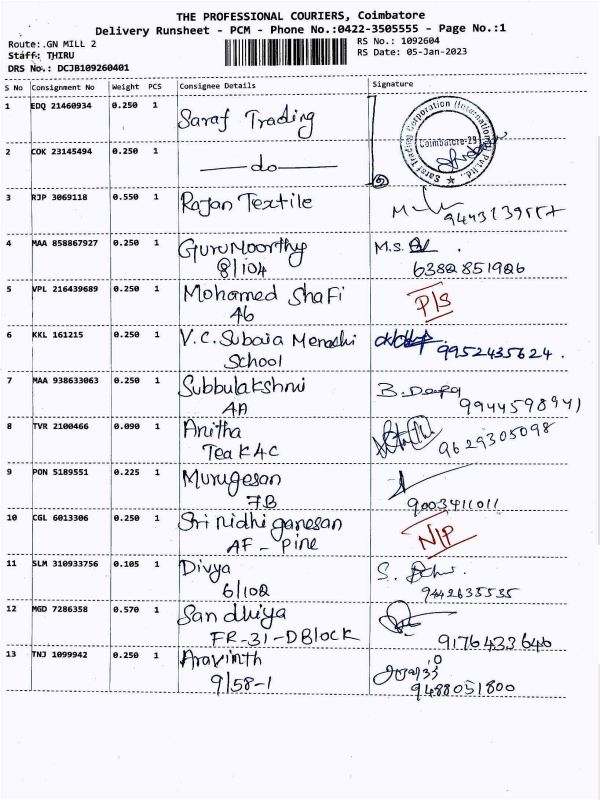 THE PROFESSIONAL COURIERS, Coimbatore
Delivery Runsheet - PCM - Phone No.:0422-3505555 - Page No.:1
Route:.GN MILL 2
RS No.: 1092604
Staff: THIRU
RS Date: 05-Jan-2023
DRS No.: DCJB109260401
S No Consignment No Weight PCS Consignee Details Signature
1 EDQ 21460934 0.250 1 Saraf Trading
Saraf Trading Corporation (International) Pvt.Ltd.,
Coimbatore-29
2 COK 23145494 0.250 1 —do—
3 RJP 3069118 0.550 1 Rajan Textile
4 MAA 858867927 0.250 1 GuruMoorthy M.S.
8/104 6382851926
5 VPL 216439689 0.250 1 Mohamed Shafi P/S
A6
6 KKL 161215 0.250 1 V.C. Subaia Menachi 9952435624.
School
7 MAA 938633063 0.250 1 Subbulakshmi B.Deepa
AA 9944598941
8 TVR 2100466 0.090 1 Anitha
Teak 4C 9629305098
9 PON 5189551 0.225 1 Murugesan
7B 9003411011
10 CGL 6013306 0.250 1 Sri nidhi ganesan N/P
AF - Pine
11 SLM 310933756 0.105 1 Divya S.
6/102 9442635535
12 MGD 7286358 0.570 1 Sandhiya
FR-31-D Block 9176433646
13 TNJ 1099942 0.250 1 Aravinth
9/58-1 9488051800